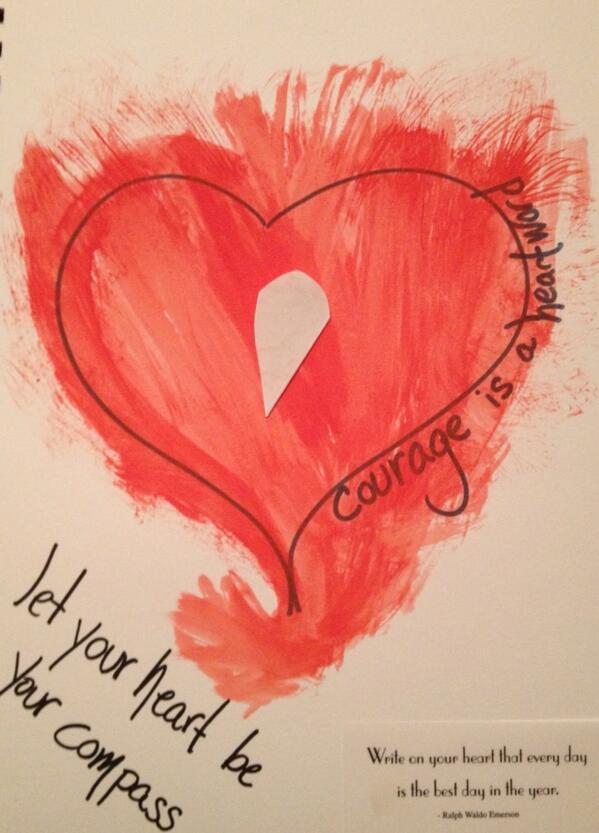 courage is a heartword
let your heart be
your compass
Write on your heart that every day
is the best day in the year.
- Ralph Waldo Emerson